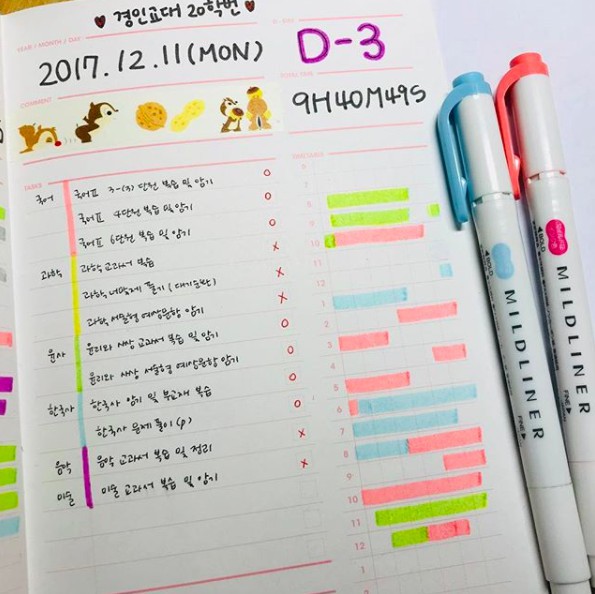 경인교대 20학번
YEAR / MONTH / DAY
D-DAY
2017.12.11(MON)
D-3
TOTAL TIME
COMMENT
9H40M49S
TASKS
TIMETABLE
국어 국어Ⅱ 3-(3) 단원 복습 및 암기 O
국어Ⅱ 4단원 복습 및 암기 O
국어Ⅱ 6단원 복습 및 암기 O
과학 과학 교과서 복습 X
과학 문제 풀기 (대기순환) X
과학 서술형 예상문항 암기 X
윤사 윤리와 사상 교과서 복습 및 암기 O
윤리와 사상 서술형 예상문항 암기 X
한국사 한국사 암기 및 부교재 복습 O
한국사 문제 풀이 O
음악 음악 교과서 복습 및 정리 X
미술 미술 교과서 복습 및 암기 X
6
7
8
9
10
11
12
1
2
3
4
5
6
7
8
9
10
11
12
1
BOLD
MILDLINER
FINE
BOLD
MILDLINER
FINE